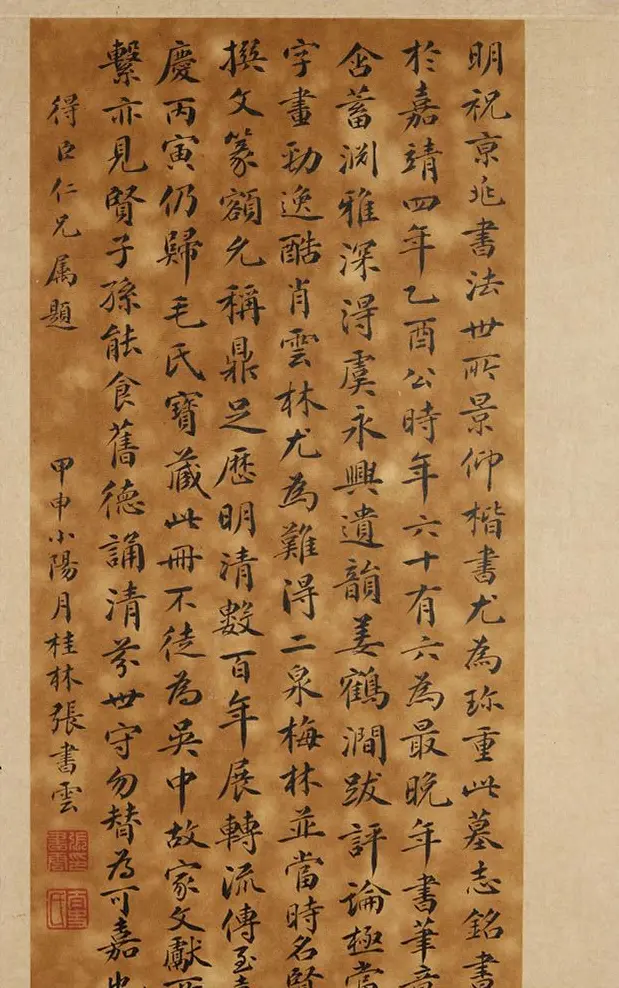 明祝京兆書法世所景仰楷書尤為珍重此墓志銘書
於嘉靖四年乙酉公時年六十有六為最晚年書筆意
含蓄渊雅深得虞永興遺韻姜鶴澗跋評論極當
字畫勁逸酷肖雲林尤為難得二泉梅林並當時名賢
撰文篆額允稱鼎足歷明清數百年展轉流傳至嘉
慶丙寅仍歸毛氏寶藏此冊不徒為吳中故家文獻所
繫亦見賢子孫能食舊德誦清芬世守勿替為可嘉也
得臣仁兄属題
甲申小陽月桂林張書雲